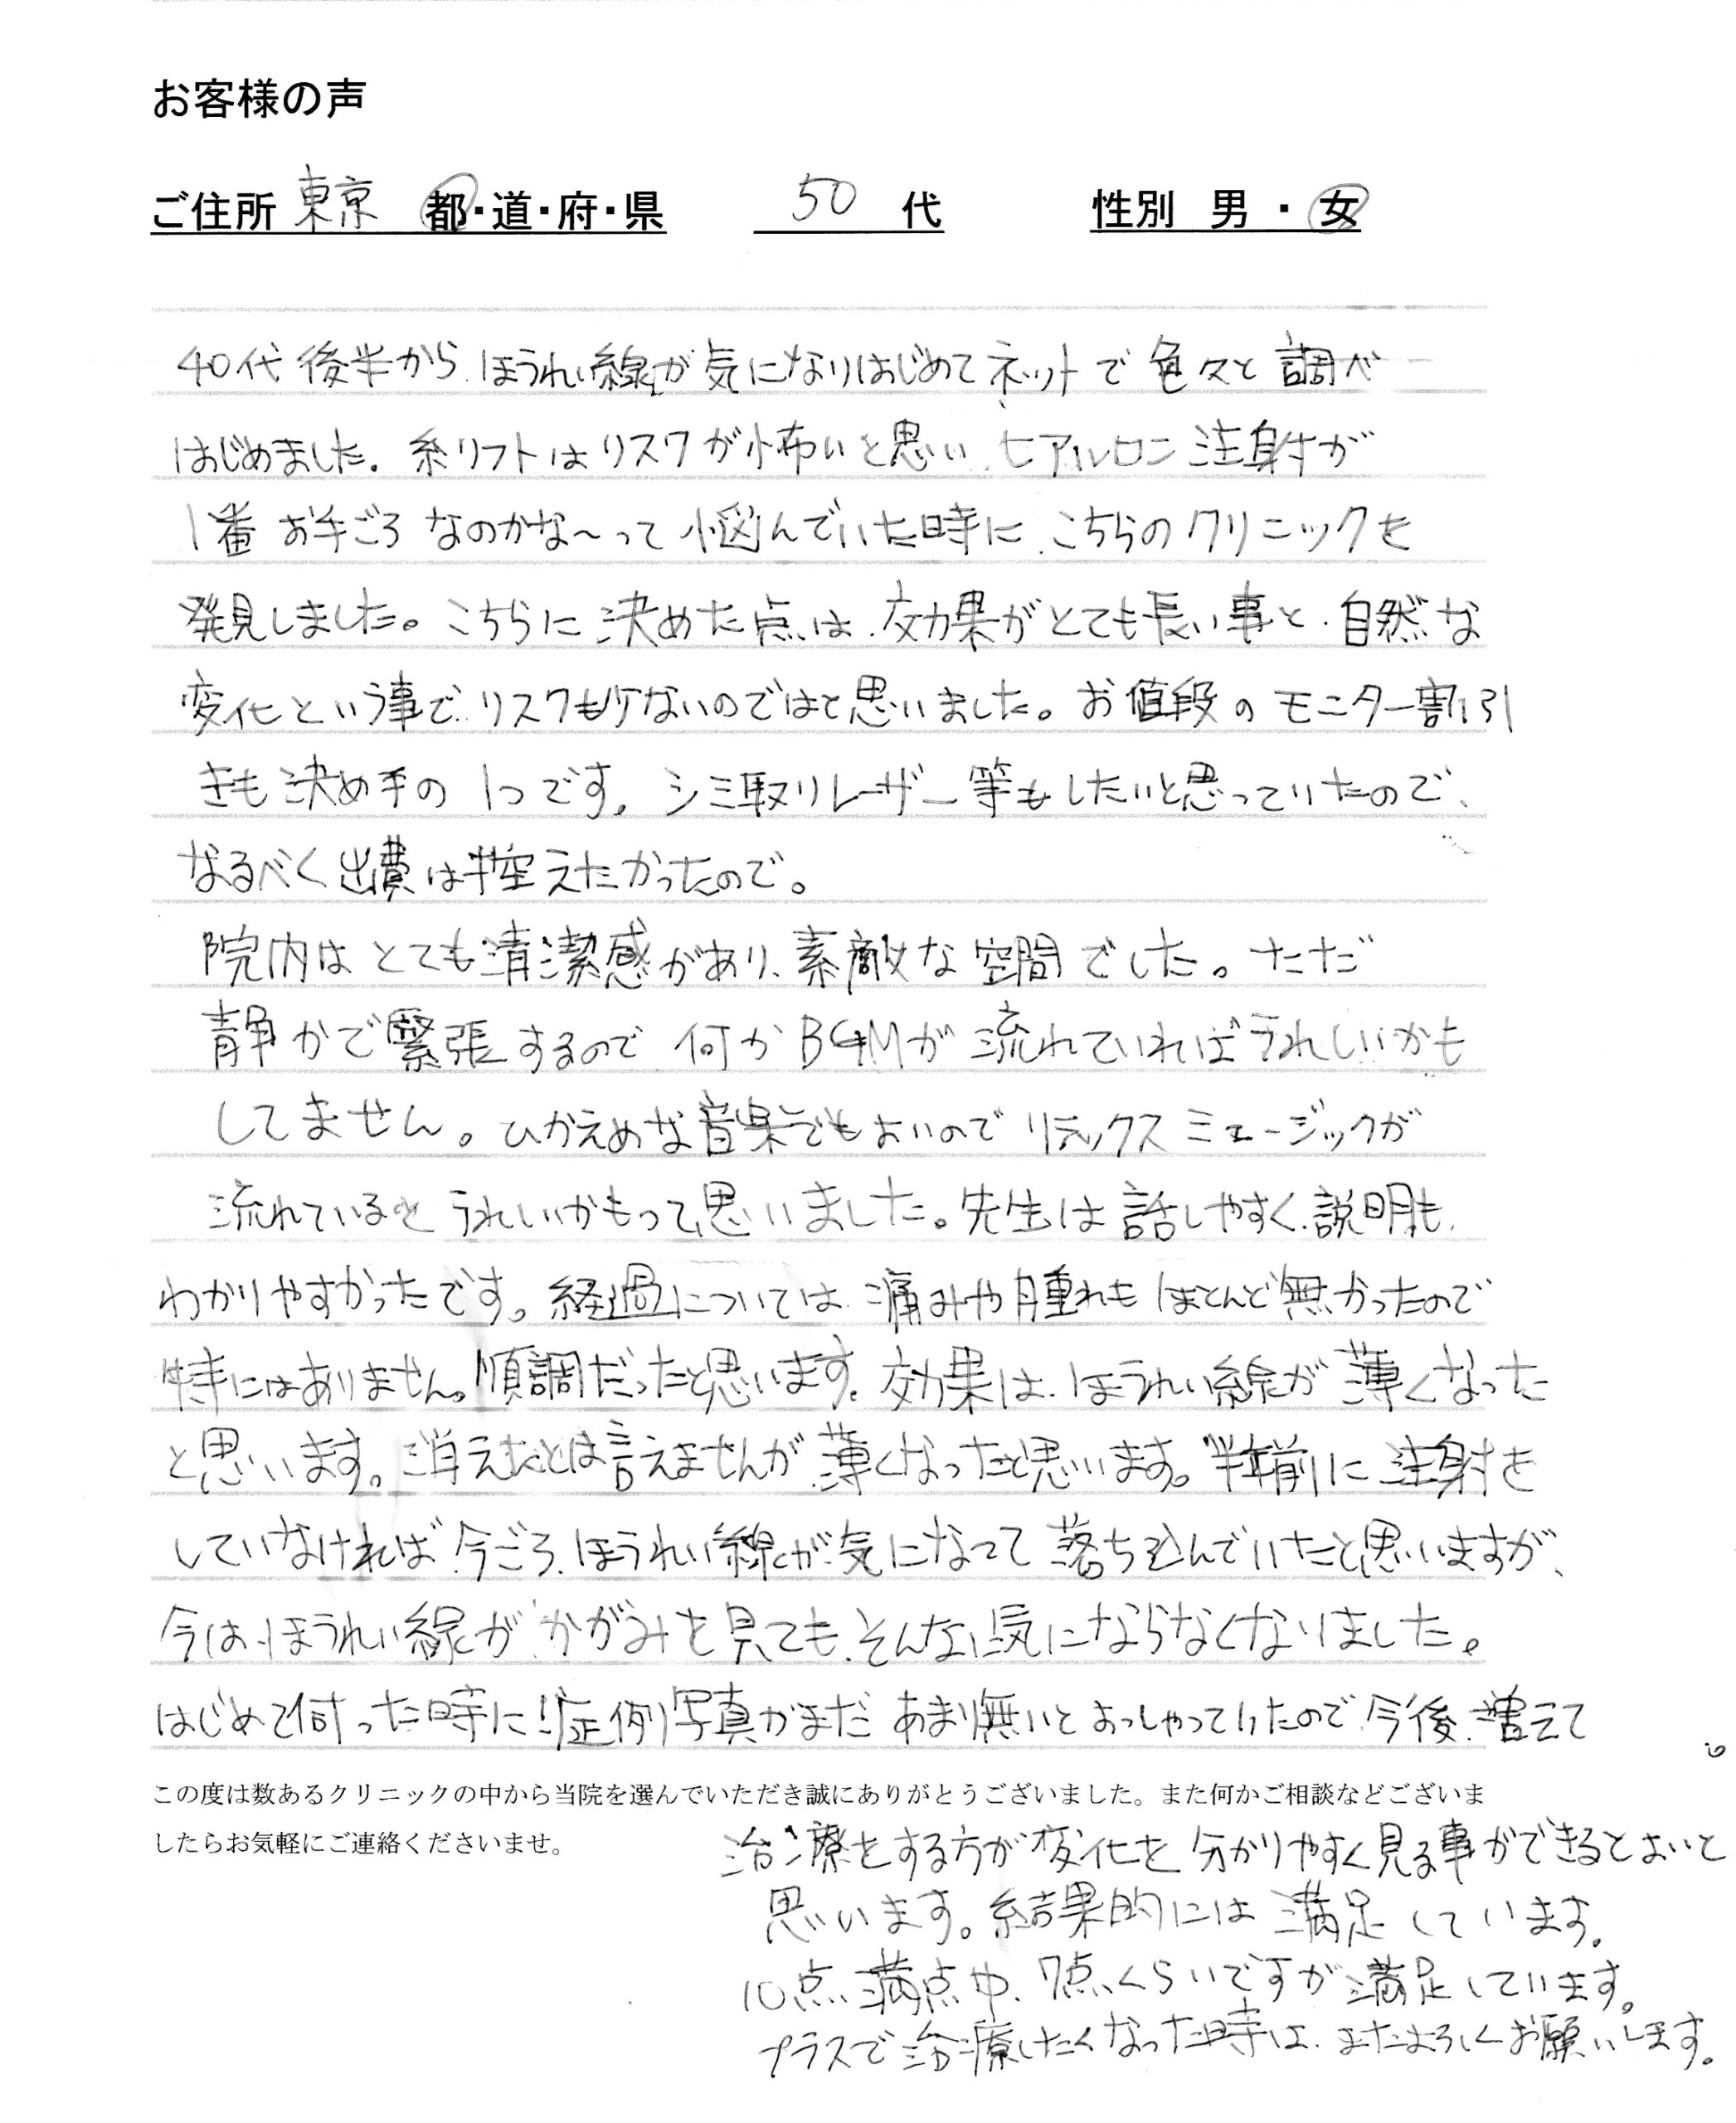 お客様の声
ご住所 東京 都・道・府・県 50 代 性別 男 ・ 女
40代後半から、ほうれい線が気になりはじめてネットで色々と調べ
はじめました。糸リフトはリスクが怖いと思い、ヒアルロン注射が
1番お手ごろなのかな〜って悩んでいた時に、こちらのクリニックを
発見しました。こちらに決めた点は、効果がとても長い事と、自然な
変化という事で、リスクも少ないのではと思いました。お値段のモニター割引
きも決め手の1つです。シミ取りレーザー等もしたいと思っていたので、
なるべく出費は控えたかったので。
院内はとても清潔感があり、素敵な空間でした。ただ
静かで緊張するので、何かBGMが流れていればうれしいかも
してません。ひかえめな音楽でもよいのでリラックスミュージックが
流れているとうれしいかもって思いました。先生は話しやすく、説明も、
わかりやすかったです。経過については、痛みや腫れもほとんど無かったので
特にはありません。順調だったと思います。効果は、ほうれい線が薄くなった
と思います。消えたとは言えませんが、薄くなったと思います。半年前に注射を
していなければ、今ごろ、ほうれい線が気になって落ち込んでいたと思いますが、
今は、ほうれい線がかがみを見ても、そんなに気にならなくなりました。
はじめて伺った時に、症例写真がまだあまり無いとおっしゃっていたので、今後、増えて
この度は数あるクリニックの中から当院を選んでいただき誠にありがとうございました。また何かご相談などございま
したらお気軽にご連絡くださいませ。
治療をする方が変化を分かりやすく見る事ができるとよいと
思います。結果的には満足しています。
10点満点中、7点くらいですが満足しています。
プラスで治療したくなった時は、またよろしくお願いします。